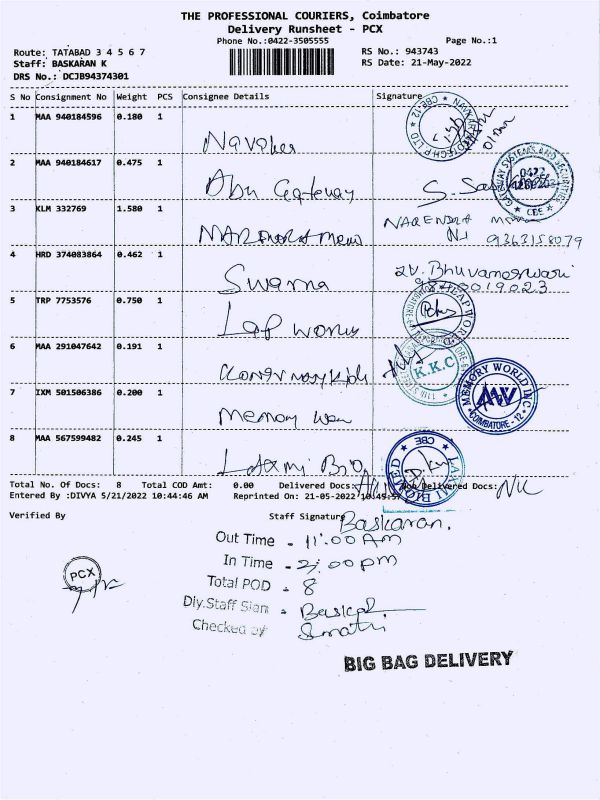 THE PROFESSIONAL COURIERS, Coimbatore
Delivery Runsheet - PCX
Phone No.:0422-3505555 Page No.:1
Route: TATABAD 3 4 5 6 7 RS No.: 943743
Staff: BASKARAN K RS Date: 21-May-2022
DRS No.: DCJB94374301
S No Consignment No Weight PCS Consignee Details Signature
1 MAA 940184596 0.180 1
2 MAA 940184617 0.475 1 Abu Gateway
3 KLM 332769 1.580 1 NARENDRA
9363158079
4 HRD 374083864 0.462 1 Swarna Bhuvameswari
5 TRP 7753576 0.750 1 Lap
6 MAA 291047642 0.191 1 K.K.C
7 IXM 501506386 0.200 1 Memory MEMORY WORLD INC COIMBATORE - 12
8 MAA 567599482 0.245 1 Laxmi Bio LAXAI BIOMED CBE
Total No. Of Docs: 8 Total COD Amt: 0.00 Delivered Docs: Non Delivered Docs: NIL
Entered By :DIVYA 5/21/2022 10:44:46 AM Reprinted On: 21-05-2022
Verified By Staff Signature Baskaran.
Out Time - 11:00 AM
In Time - 2:00 pm
PCX
Total POD - 8
Dly.Staff Sign -
Checked by
BIG BAG DELIVERY